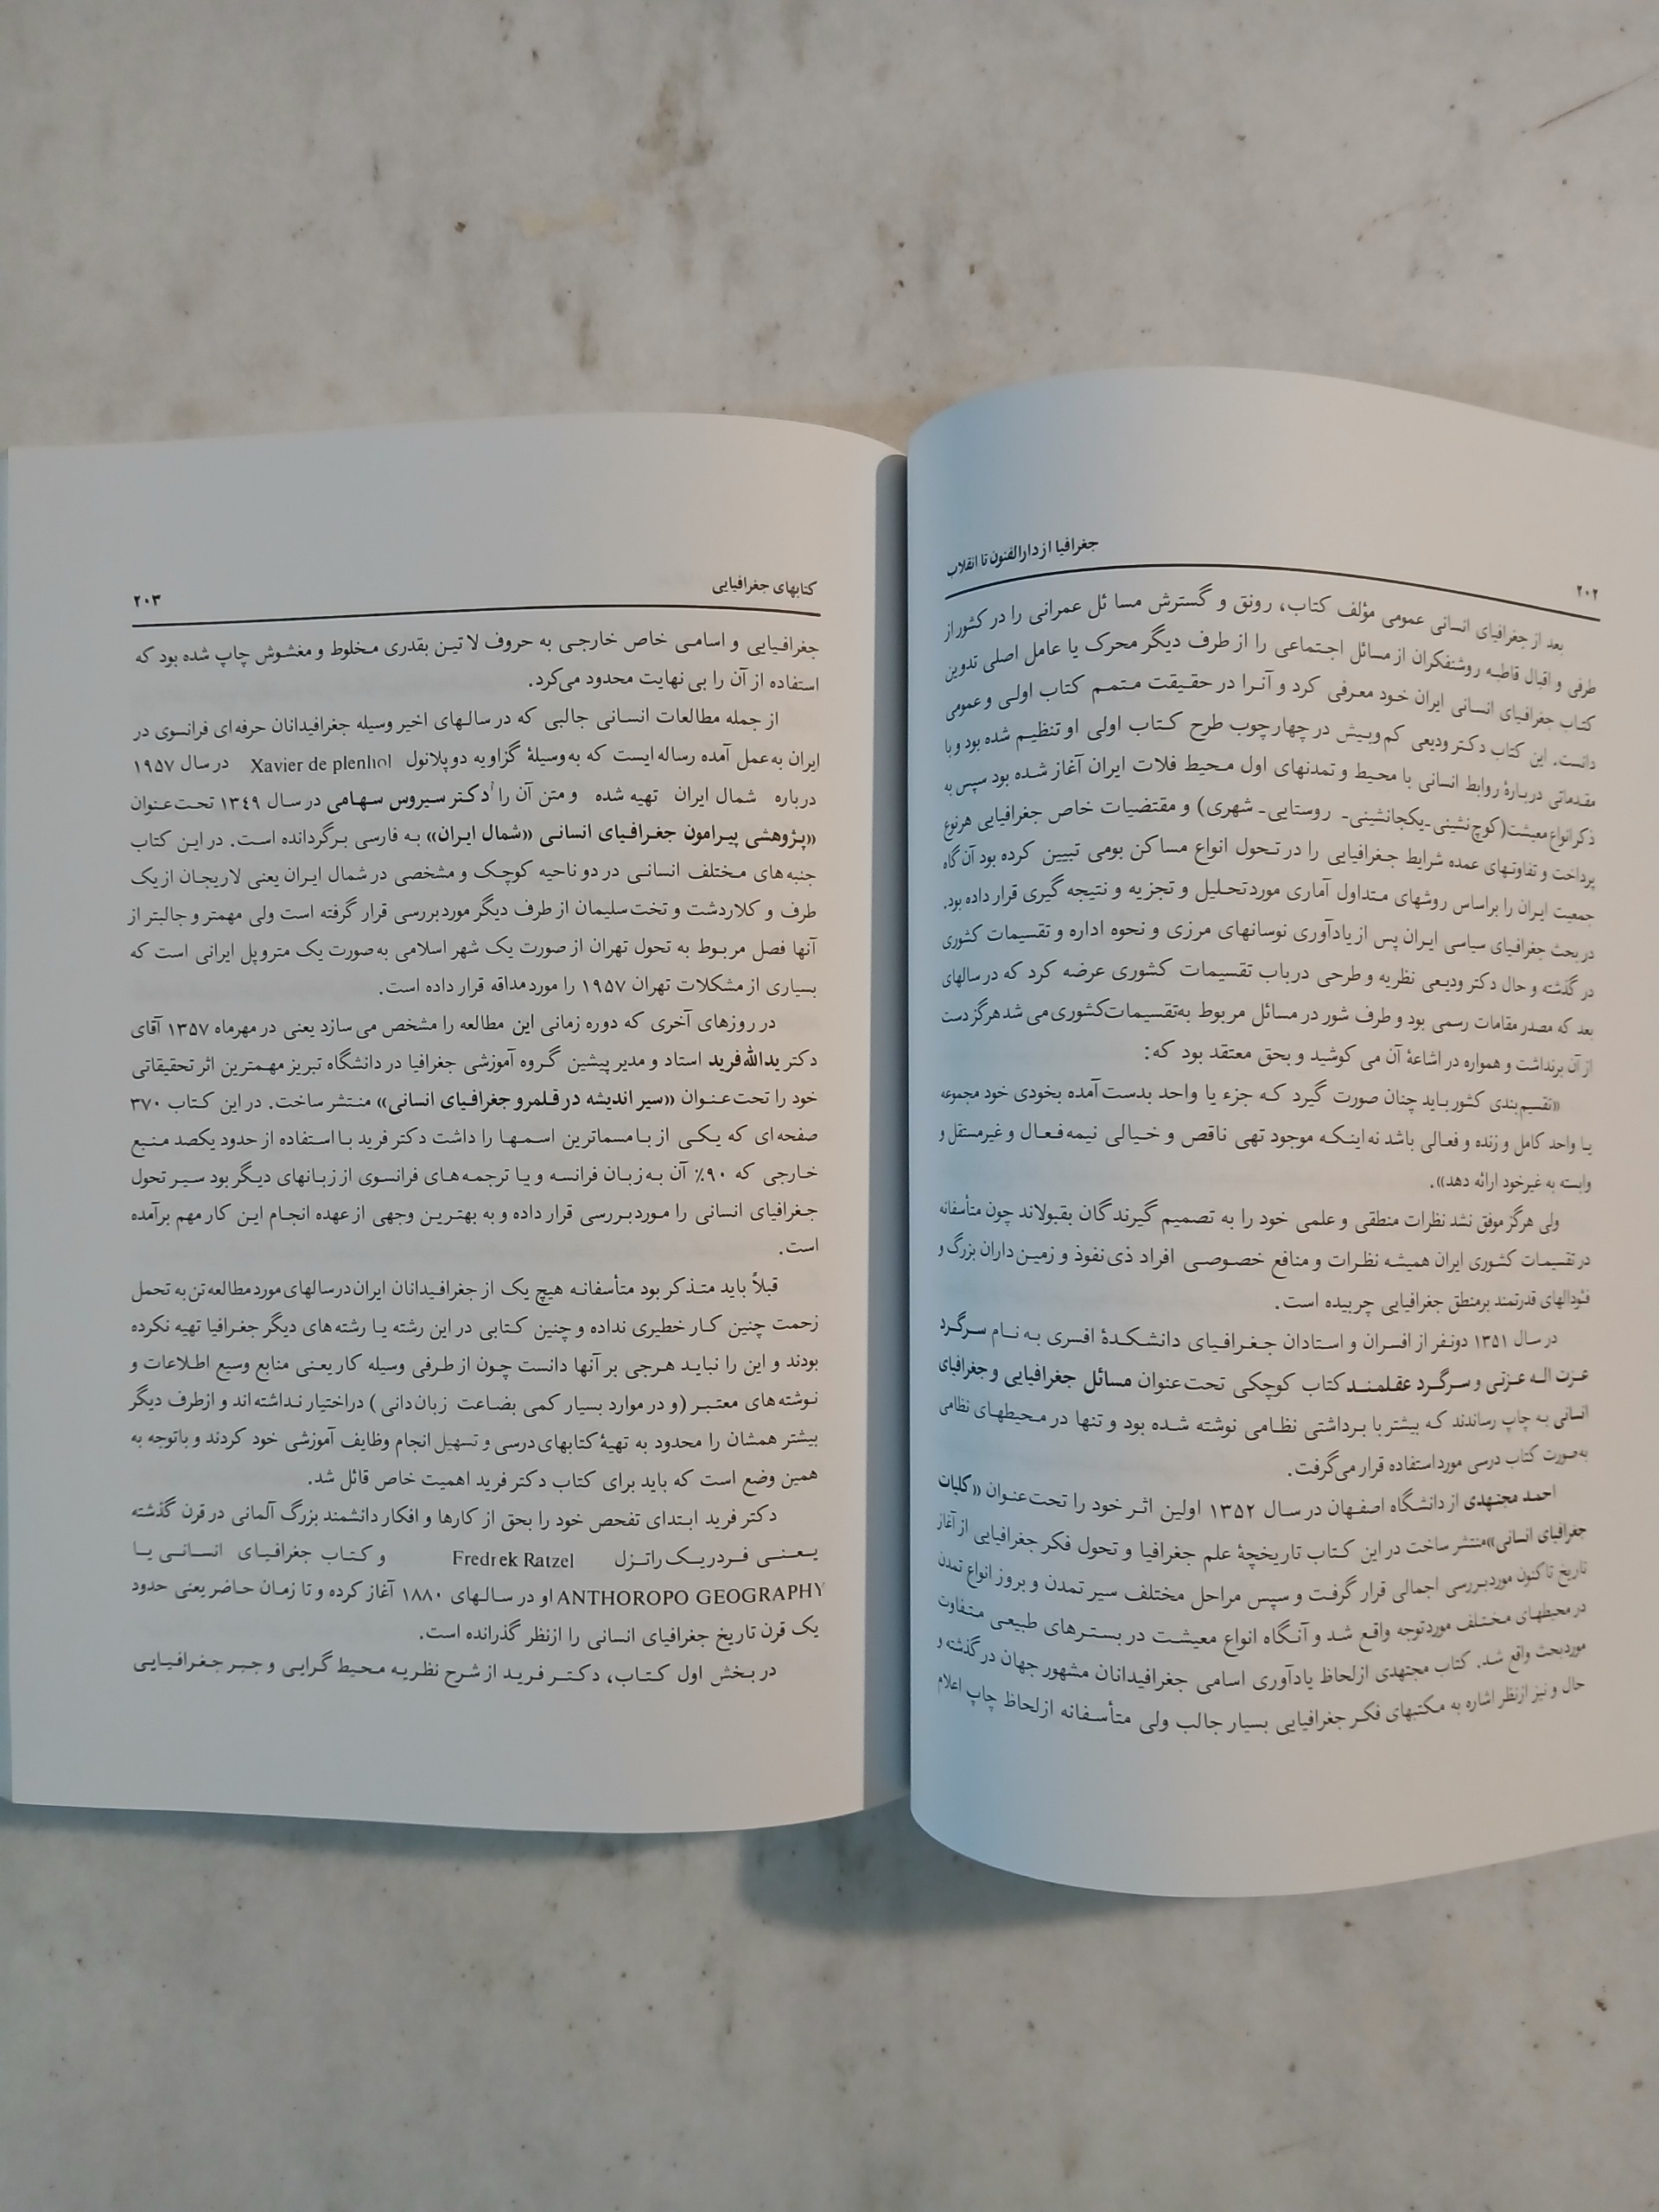 ۲۰۲
جغرافیا از دارالفنون تا انقلاب
بعد از جغرافیای انسانی عمومی مؤلف کتاب، رونق و گسترش مسائل عمرانی را در کشور از
طرفی و اقبال قاطبه روشنفکران از مسائل اجتماعی را از طرف دیگر محرک یا عامل اصلی تدوین
کتاب جغرافیای انسانی ایران خود معرفی کرد و آنرا در حقیقت متمم کتاب اولی و عمومی
دانست. این کتاب دکتر ودیعی کم‌وبیش در چهارچوب طرح کتاب اولی او تنظیم شده بود و با
مقدماتی دربارهٔ روابط انسانی با محیط و تمدنهای اول محیط فلات ایران آغاز شده بود سپس به
ذکر انواع معیشت (کوچ‌نشینی-یکجانشینی- روستایی- شهری) و مقتضیات خاص جغرافیایی هرنوع
پرداخت و تفاوتهای عمده شرایط جغرافیایی را در تحول انواع مساکن بومی تبیین کرده بود آن‌گاه
جمعیت ایران را براساس روشهای متداول آماری موردتحلیل و تجزیه و نتیجه گیری قرار داده بود.
در بحث جغرافیای سیاسی ایران پس از یادآوری نوسانهای مرزی و نحوه اداره و تقسیمات کشوری
در گذشته و حال دکتر ودیعی نظریه و طرحی در باب تقسیمات کشوری عرضه کرد که در سالهای
بعد که مصدر مقامات رسمی بود و طرف شور در مسائل مربوط به‌تقسیمات‌کشوری می شد هرگز دست
از آن برنداشت و همواره در اشاعهٔ آن می کوشید و بحق معتقد بود که:
«تقسیم‌بندی کشور باید چنان صورت گیرد که جزء یا واحد بدست آمده بخودی خود مجموعه
یا واحد کامل و زنده و فعالی باشد نه اینکه موجود تهی ناقص و خیالی نیمه‌فعال و غیرمستقل و
وابسته به غیرخود ارائه دهد».
ولی هرگز موفق نشد نظرات منطقی و علمی خود را به تصمیم گیرندگان بقبولاند چون متأسفانه
در تقسیمات کشوری ایران همیشه نظرات و منافع خصوصی افراد ذی نفوذ و زمین‌داران بزرگ و
فئودالهای قدرتمند برمنطق جغرافیایی چربیده است.
در سال ۱۳۵۱ دونفر از افسران و استادان جغرافیای دانشکدهٔ افسری به نام سرگرد
عزت اله عزتی و سرگرد عقلمند کتاب کوچکی تحت‌عنوان مسائل جغرافیایی و جغرافیای
انسانی به چاپ رساندند که بیشتر با برداشتی نظامی نوشته شده بود و تنها در محیطهای نظامی
به‌صورت کتاب درسی مورداستفاده قرار می‌گرفت.
احمد مجتهدی از دانشگاه اصفهان در سال ۱۳۵۲ اولین اثر خود را تحت‌عنوان «کلیات
جغرافیای انسانی» منتشر ساخت در این کتاب تاریخچهٔ علم جغرافیا و تحول فکر جغرافیایی از آغاز
تاریخ تاکنون موردبررسی اجمالی قرار گرفت و سپس مراحل مختلف سیر تمدن و بروز انواع تمدن
در محیطهای مختلف موردتوجه واقع شد و آنگاه انواع معیشت در بسترهای طبیعی متفاوت
موردبحث واقع شد. کتاب مجتهدی ازلحاظ یادآوری اسامی جغرافیدانان مشهور جهان در گذشته و
حال و نیز ازنظر اشاره به مکتبهای فکر جغرافیایی بسیار جالب ولی متأسفانه ازلحاظ چاپ اعلام
کتابهای جغرافیایی
۲۰۳
جغرافیایی و اسامی خاص خارجی به حروف لاتین بقدری مخلوط و مغشوش چاپ شده بود که
استفاده از آن را بی نهایت محدود می‌کرد.
از جمله مطالعات انسانی جالبی که در سالهای اخیر وسیله جغرافیدانان حرفه‌ای فرانسوی در
ایران به‌عمل آمده رساله ایست که به‌وسیلهٔ گزاویه دوپلانول Xavier de plenhol در سال ۱۹۵۷
درباره شمال ایران تهیه شده و متن آن را دکتر سیروس سهامی در سال ۱۳٤۹ تحت‌عنوان
«پژوهشی پیرامون جغرافیای انسانی «شمال ایران» به فارسی برگردانده است. در این کتاب
جنبه‌های مختلف انسانی در دو ناحیه کوچک و مشخصی در شمال ایران یعنی لاریجان از یک
طرف و کلاردشت و تخت‌سلیمان از طرف دیگر موردبررسی قرار گرفته است ولی مهمتر و جالبتر از
آنها فصل مربوط به تحول تهران از صورت یک شهر اسلامی به‌صورت یک متروپل ایرانی است که
بسیاری از مشکلات تهران ۱۹۵۷ را موردمداقه قرار داده است.
در روزهای آخری که دوره زمانی این مطالعه را مشخص می سازد یعنی در مهرماه ۱۳۵۷ آقای
دکتر یداللّه‌فرید استاد و مدیر پیشین گروه آموزشی جغرافیا در دانشگاه تبریز مهمترین اثر تحقیقاتی
خود را تحت‌عنوان «سیر اندیشه در قلمرو جغرافیای انسانی» منتشر ساخت. در این کتاب ۳۷۰
صفحه‌ای که یکی از با مسماترین اسمها را داشت دکتر فرید با استفاده از حدود یکصد منبع
خارجی که ۹۰٪ آن به‌زبان فرانسه و یا ترجمه‌های فرانسوی از زبانهای دیگر بود سیر تحول
جغرافیای انسانی را موردبررسی قرار داده و به بهترین وجهی از عهده انجام این کار مهم برآمده
است.
قبلاً باید متذکر بود متأسفانه هیچ یک از جغرافیدانان ایران درسالهای موردمطالعه تن به تحمل
زحمت چنین کار خطیری نداده و چنین کتابی در این رشته یا رشته‌های دیگر جغرافیا تهیه نکرده
بودند و این را نباید هرجی بر آنها دانست چون از طرفی وسیله کار یعنی منابع وسیع اطلاعات و
نوشته‌های معتبر (و در موارد بسیار کمی بضاعت زبان‌دانی) دراختیار نداشته‌اند و ازطرف دیگر
بیشتر همشان را محدود به تهیهٔ کتابهای درسی و تسهیل انجام وظایف آموزشی خود کردند و باتوجه به
همین وضع است که باید برای کتاب دکتر فرید اهمیت خاص قائل شد.
دکتر فرید ابتدای تفحص خود را بحق از کارها و افکار دانشمند بزرگ آلمانی در قرن گذشته
یعنی فردریک راتزل Fredrek Ratzel و کتاب جغرافیای انسانی یا
ANTHOROPO GEOGRAPHY او در سالهای ۱۸۸۰ آغاز کرده و تا زمان حاضر یعنی حدود
یک قرن تاریخ جغرافیای انسانی را ازنظر گذرانده است.
در بخش اول کتاب، دکتر فرید از شرح نظریه محیط گرایی و جبر جغرافیایی